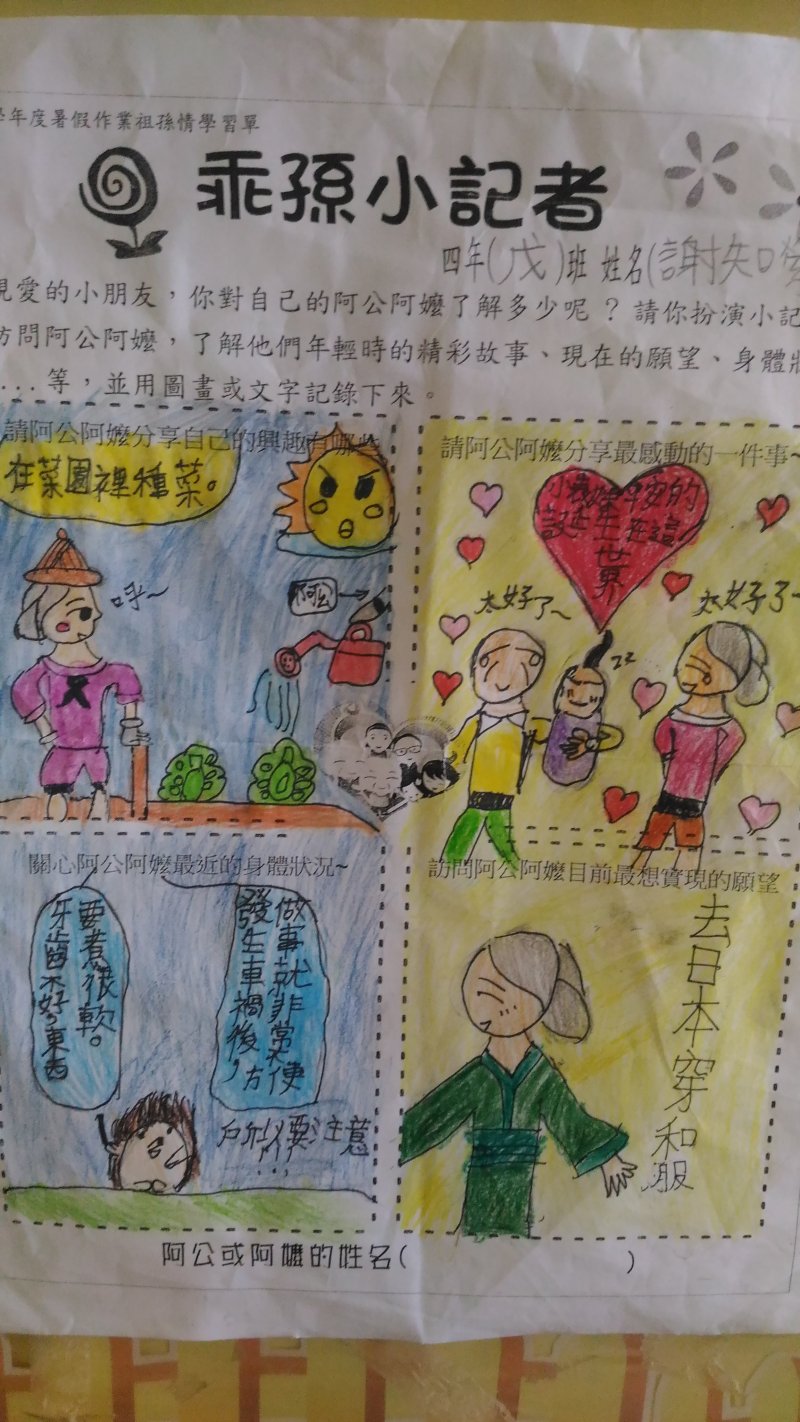 學年度暑假作業祖孫情學習單
乖孫小記者
四年(戊)班 姓名(謝
親愛的小朋友，你對自己的阿公阿嬤了解多少呢？請你扮演小記
訪問阿公阿嬤，了解他們年輕時的精彩故事、現在的願望、身體狀
...等，並用圖畫或文字記錄下來。
請阿公阿嬤分享自己的興趣有哪些
在菜園裡種菜。
呼~
阿公
請阿公阿嬤分享最感動的一件事~
世界
太好了~
太好了~
zz
關心阿公阿嬤最近的身體狀況~
牙齒不好，東西
要煮很軟。
發生車禍後，
做事就非常不方便
所以要注意...
訪問阿公阿嬤目前最想實現的願望
去日本穿和服
阿公或阿嬤的姓名( )